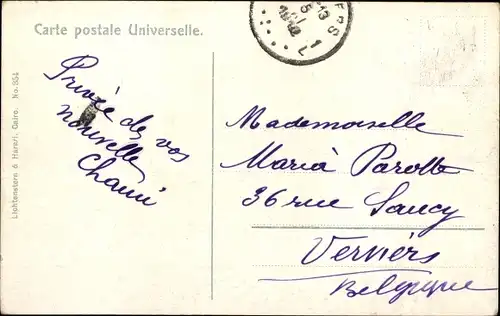 Carte postale Universelle.
Privée de vos
nouvelles
Mademoiselle
Maria Parotte
36 rue Saucy
Verviers
Belgique
Lichtenstern & Harari, Cairo. No. 354